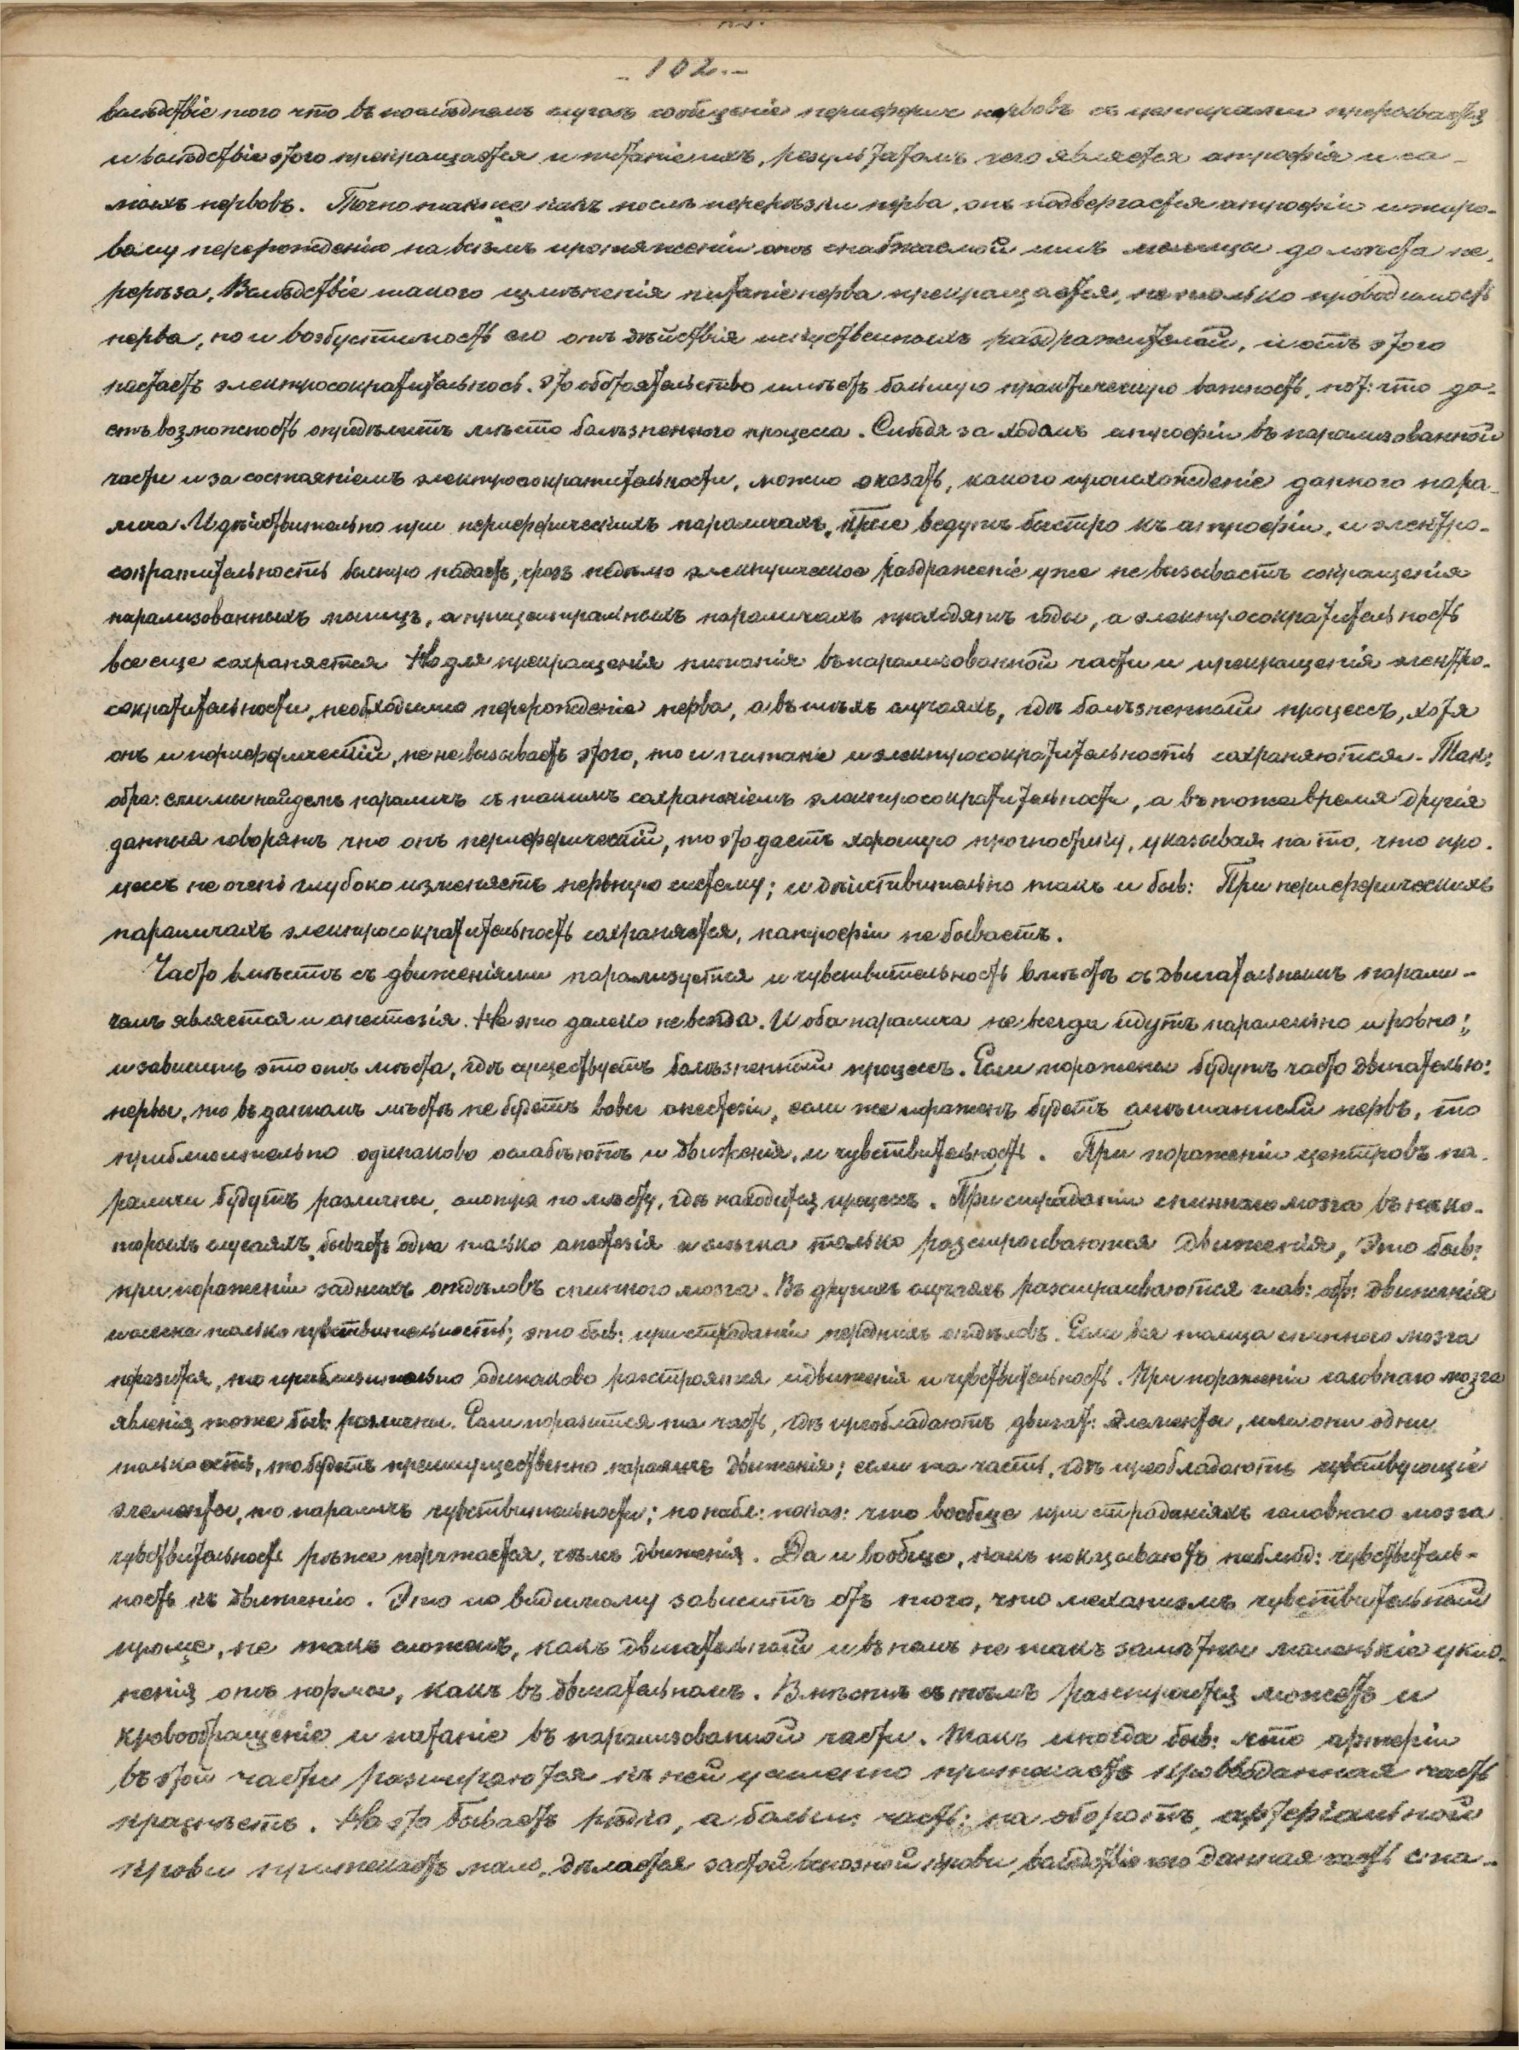 - 102.-
вслѣдствіе того что въ послѣднемъ случаѣ сообщеніе перифериче нервовъ съ центрами прерывается
и вслѣдствіе этого прекращается и питаніе ихъ, результатомъ чего является атрофія и са-
михъ нервовъ. Точно также какъ послѣ перерѣзки нерва, онъ подвергается атрофіи и жиро-
вому перерожденію на всемъ протяженіи отъ снабжаемой имъ мышцы до мѣста пе-
рерѣза. Вслѣдствіе такого измѣненія питаніе нерва прекращается, не только проводимость
нерва, но и возбудимость его отъ дѣйствія искуственныхъ раздражителей, и отъ этого
падаетъ электросократительность. Это обстоятельство имѣетъ большую практическую важность, пот: что да-
етъ возможность опредѣлить мѣсто болѣзненнаго процесса. Слѣдя за ходомъ атрофіи въ парализованной
части и за состояніемъ электросократительности, можно сказать, какого происхожденіе даннаго пара-
лича. И дѣйствительно при периферическихъ параличахъ, ведутъ быстро къ атрофіи, и электро-
сократительность быстро падаетъ, чрезъ недѣлю электрическое раздраженіе уже не вызываетъ сокращенія
парализованныхъ мышцъ, а при центральныхъ параличахъ проходятъ годы, а электросократительность
все еще сохраняется. Но для прекращенія питанія въ парализованной части и прекращенія электро-
сократительности, необходимо перерожденіе нерва, а въ тѣхъ случаяхъ, гдѣ болѣзненный процессъ, хотя
онъ и периферическій, но не вызываетъ этого, то и питаніе и электросократительность сохраняются. Так:
обра: если мы найдемъ параличъ съ такимъ сохраненіемъ электросократительности, а въ тоже время другія
данныя говорятъ что онъ периферическій, то это даетъ хорошую прогностику, указывая на то, что про-
цессъ не очень глубоко измѣняетъ нервную систему; и дѣйствительно такъ и быв: При периферическихъ
параличахъ электросократительность сохраняется, атрофіи не бываетъ.
Часто вмѣстѣ съ движеніями парализуется и чувствительность вмѣстѣ съ двигательнымъ парали-
чемъ является и анестезія. Но это далеко не всегда. И оба паралича не всегда идутъ паралельно и ровно;
и зависитъ это отъ мѣста, гдѣ существуетъ болѣзненный процессъ. Если поражены будутъ часто двигательн:
нервы, то въ данномъ мѣстѣ не будетъ вовсе анестезіи, если же пораженъ будетъ смѣшанный нервъ, то
приблизительно одинаково ослабѣютъ и движенія, и чувствительность. При пораженіи центровъ па-
раличи будутъ различны, смотря по мѣсту, гдѣ находится процессъ. При страданіи спиннаго мозга въ нѣко-
торыхъ случаяхъ, бываетъ одна только анестезія и слегка только разстраиваются движенія, Это быв:
при пораженіи заднихъ отдѣловъ спинного мозга. Въ другихъ случаяхъ разстраиваются глав: обр: движенія
и слегка только чувствительность; это быв: при страданіи переднихъ отдѣловъ. Если вся толща спинного мозга
поразится, то приблизительно одинаково разстроятся и движенія и чувствительность. При пораженіи головнаго мозга
явленія тоже быв: различны. Если поразится та часть, гдѣ преобладаютъ двигат: элементы, или они одни
только есть, то будетъ преимущественно параличъ движенія; если та часть, гдѣ преобладаютъ чувствующіе
элементы, то параличъ чувствительности; но набл: показ: что вообще при страданіяхъ головнаго мозга
чувствительность рѣже поражается, чѣмъ движенія. Да и вообще, какъ показываютъ наблюд: чувствитель-
ность къ движенію. Это по видимому зависитъ отъ того, что механизмъ чувствительный
проще, не такъ сложенъ, какъ двигательный и въ немъ не такъ замѣтны маленькіе укло-
ненія отъ нормы, какъ въ двигательномъ. Вмѣстѣ съ тѣмъ разстроится можетъ и
кровообращеніе и питаніе въ парализованной части. Такъ иногда быв: что артеріи
въ этой части разширяются къ ней усиленно притекаетъ кровь данная часть
краснѣетъ. Но это бываетъ рѣдко, а больш: часть: на оборотъ, артеріальной
крови притекаетъ мало, дѣлается застой венозной крови, вслѣдствіе чего данная часть спа-